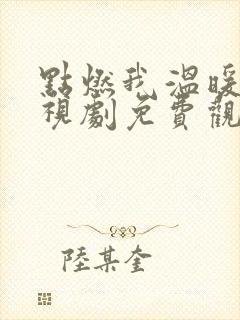 點燃我溫暖
視劇免費觀
陸某奎